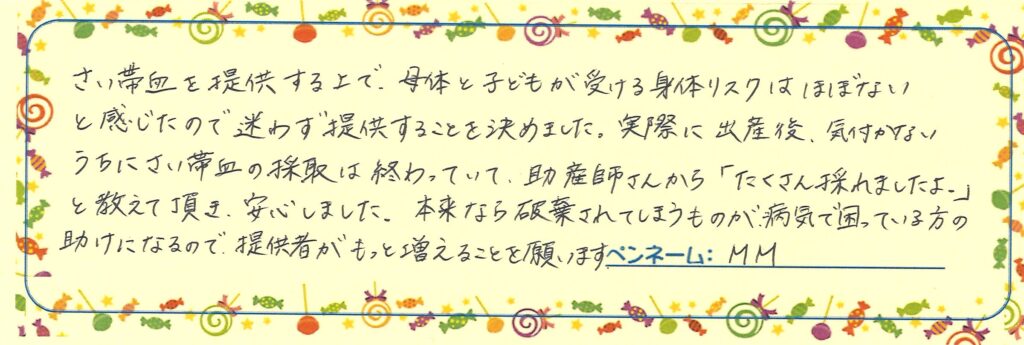 さい帯血を提供する上で、母体と子どもが受ける身体リスクはほぼない
と感じたので迷わず提供することを決めました。実際に出産後、気付かない
うちにさい帯血の採取は終わっていて、助産師さんから「たくさん採れましたよ。」
と教えて頂き、安心しました。本来なら破棄されてしまうものが、病気で困っている方の
助けになるので、提供者がもっと増えることを願います ペンネーム: MM